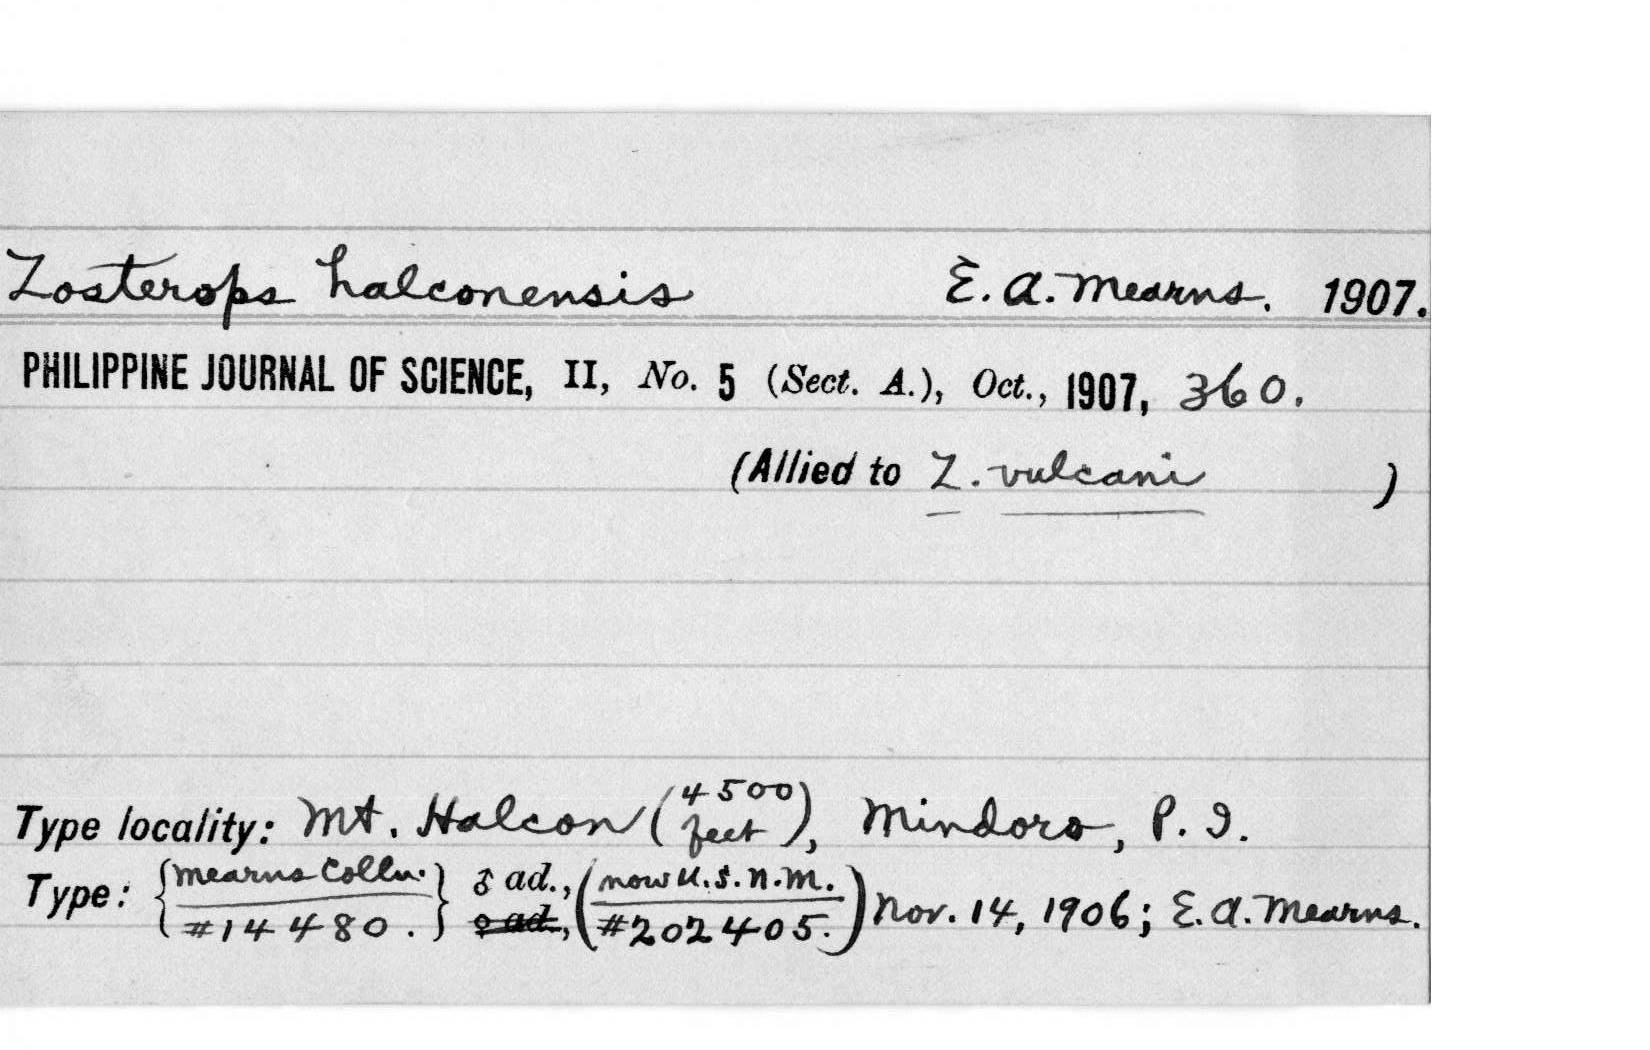 Zosterops halconensis E. A. Mearns. 1907.
PHILIPPINE JOURNAL OF SCIENCE, II, No. 5 (Sect. A.), Oct., 1907, 360.
(Allied to Z. vulcani )
Type locality: Mt. Halcon (4500 feet), Mindoro, P. I.
Type: {Mearns Colln. #14480.} ♂ ad., ♀ ad., (now U.S.N.M. #202405.) Nov. 14, 1906; E. A. Mearns.